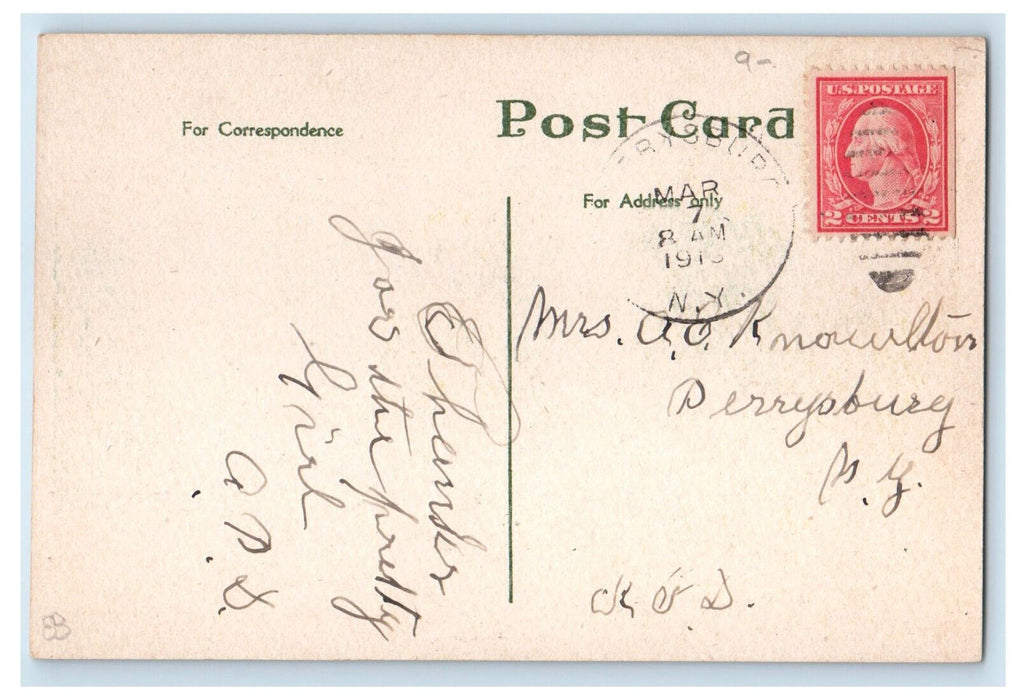 9-
U.S. POSTAGE
Post Card
For Correspondence
For Address only
MAR
7
8 AM
N.Y.
2 CENTS 2
Thanks
for the pretty
Girl
A. D. S.
Mrs. A. C. Knowlton
Perrysburg
N. Y.
R F D.